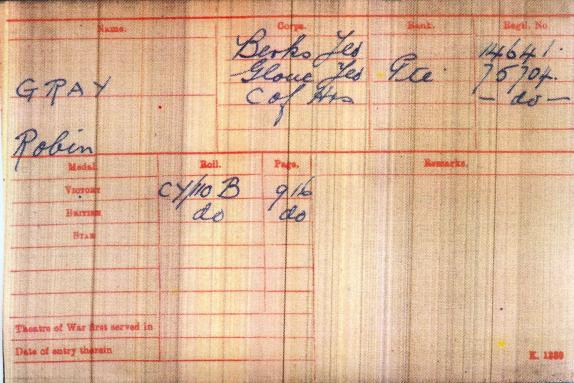 Name. Corps. Rank. Regtl. No.
Berks Yeo 14641.
GRAY Glouc Yeo Pte 75704.
C of Hrs — do —
Robin
Medal. Roll. Page. Remarks.
VICTORY CY/110 B 916
BRITISH do do
STAR
Theatre of War first served in
Date of entry therein
K. 1380